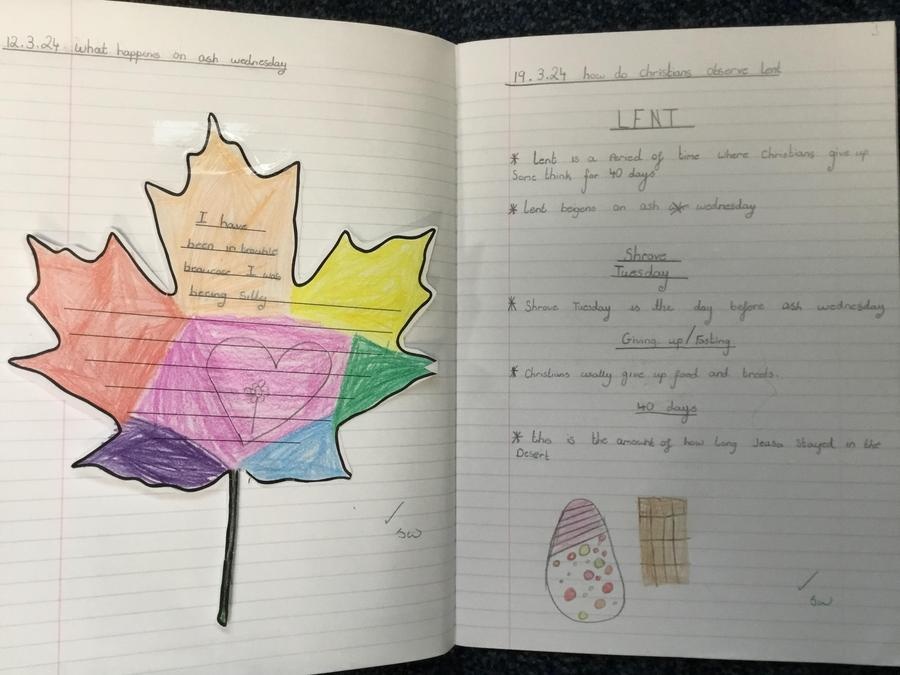 12.3.24 What happens on ash wednesday
I have
been in trouble
beaucase I was
being silly
sw
19.3.24 how do christians observe lent
LENT
* Lent is a Period of time where Christians give up
Some think for 40 days
* Lent begens on ash wednesday
Shrove
Tuesday
* Shrove Tuesday is the day before ash wednesday
Giving up/Fasting
* Christians usally give up food and treeds.
40 days
* this is the amount of how long Jeasa Stayed in the
Desert
sw